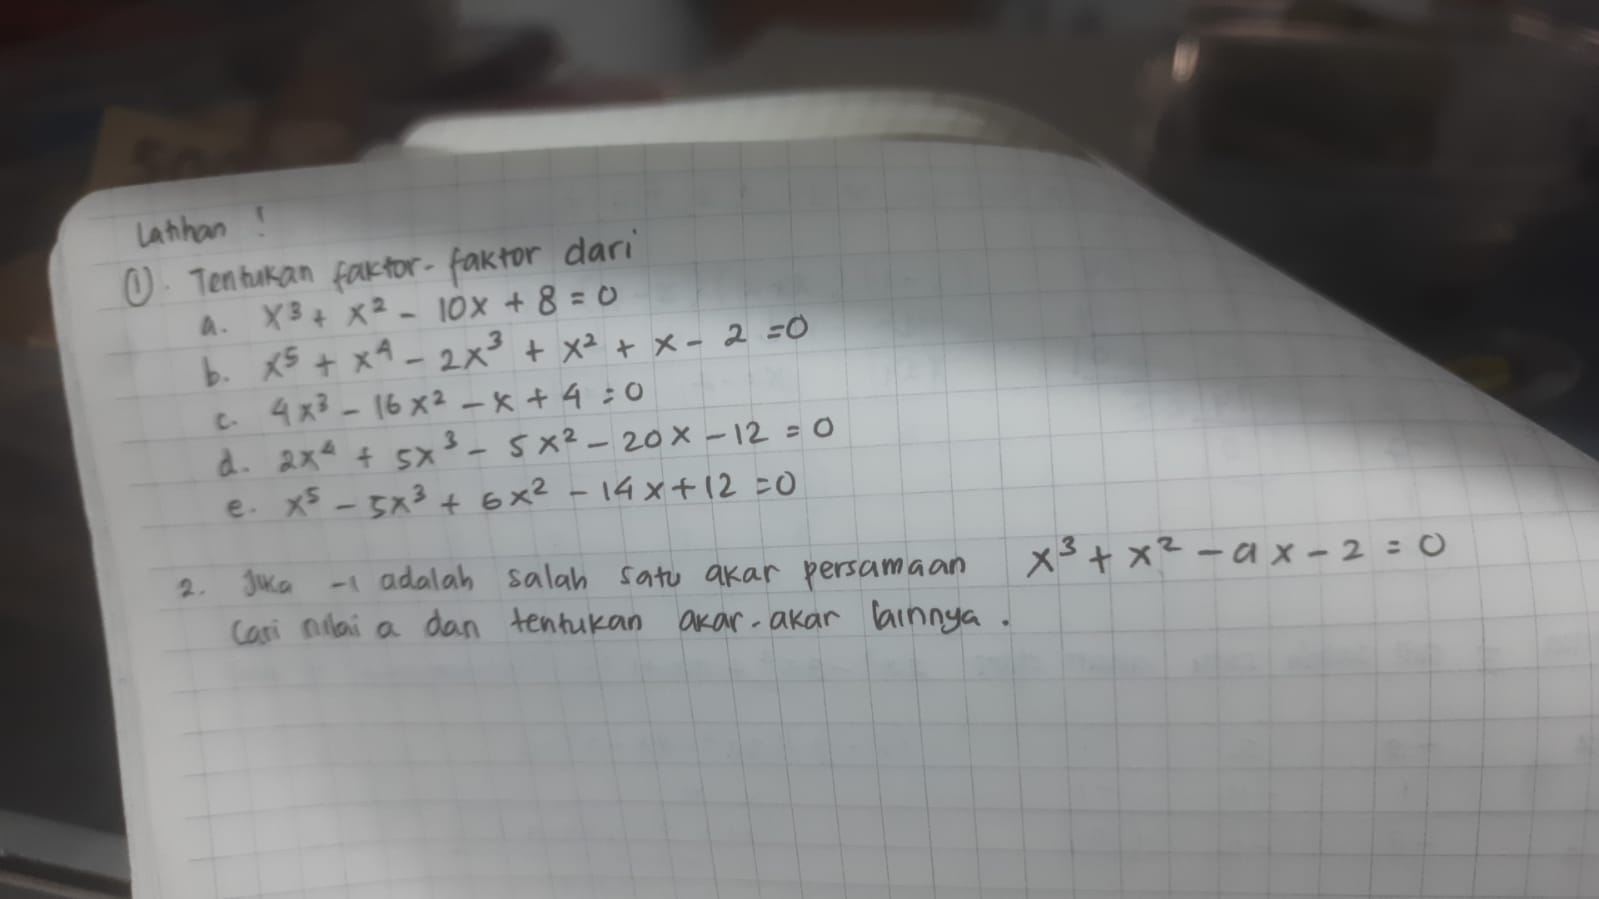 Latihan !
① Tentukan faktor-faktor dari
a. x³ + x² - 10x + 8 = 0
b. x⁵ + x⁴ - 2x³ + x² + x - 2 = 0
c. 4x³ - 16x² - x + 4 = 0
d. 2x⁴ + 5x³ - 5x² - 20x - 12 = 0
e. x⁵ - 5x³ + 6x² - 14x + 12 = 0
2. Jika -1 adalah salah satu akar persamaan x³ + x² - ax - 2 = 0
Cari nilai a dan tentukan akar-akar lainnya.